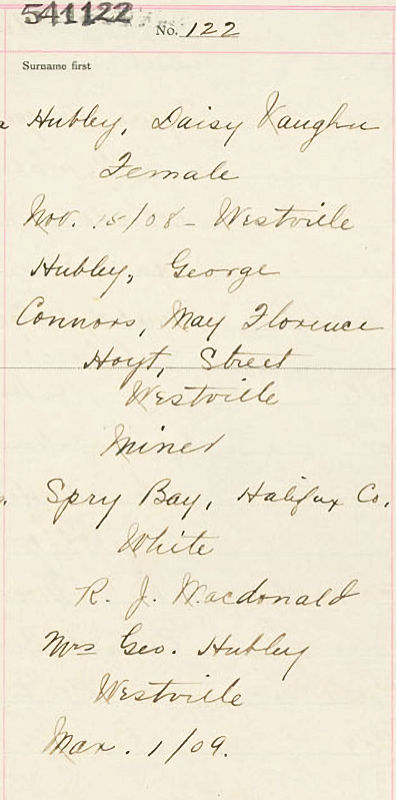 541122
No. 122
Surname first
Hubley, Daisy Vaughn
Female
Nov. 15/08 - Westville
Hubley, George
Connors, May Florence
Hoyt, Street
Westville
Miner
Spry Bay, Halifax Co.
White
R. J. Macdonald
Mrs Geo. Hubley
Westville
Mar. 1/09.